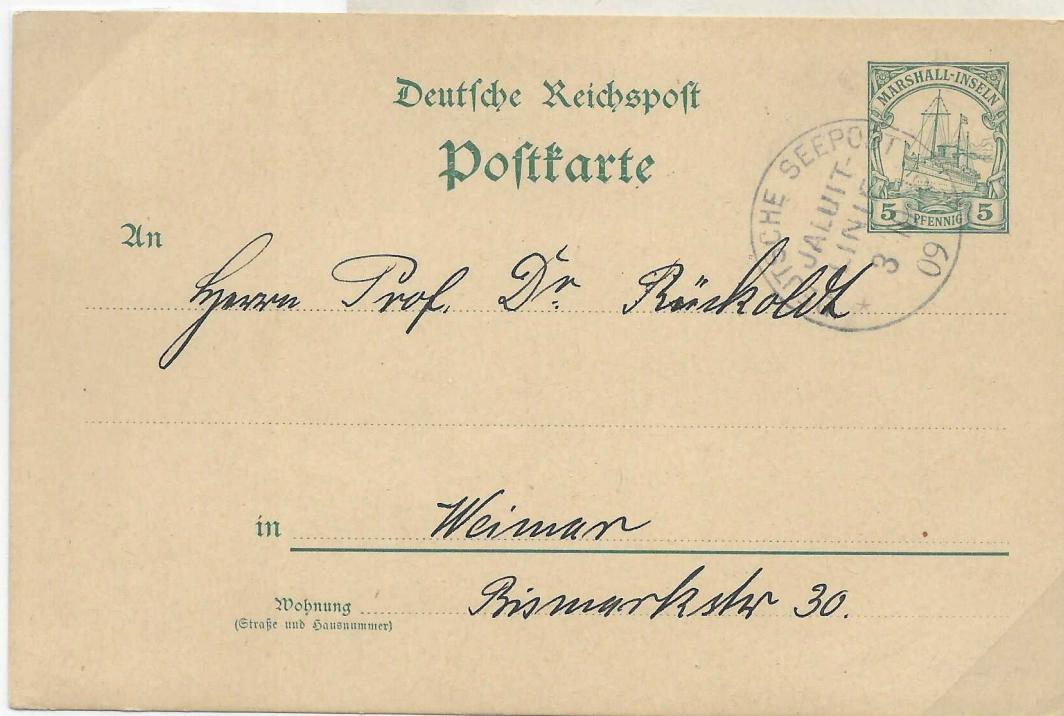 Deutsche Reichspost
Postkarte
MARSHALL-INSELN
5 PFENNIG 5
TSCHE SEEPOST
JALUIT-
LINIE
3
09
An
Herrn Prof. Dr. Rückoldt
in Weimar
Wohnung Bismarkstr 30.
(Straße und Hausnummer)